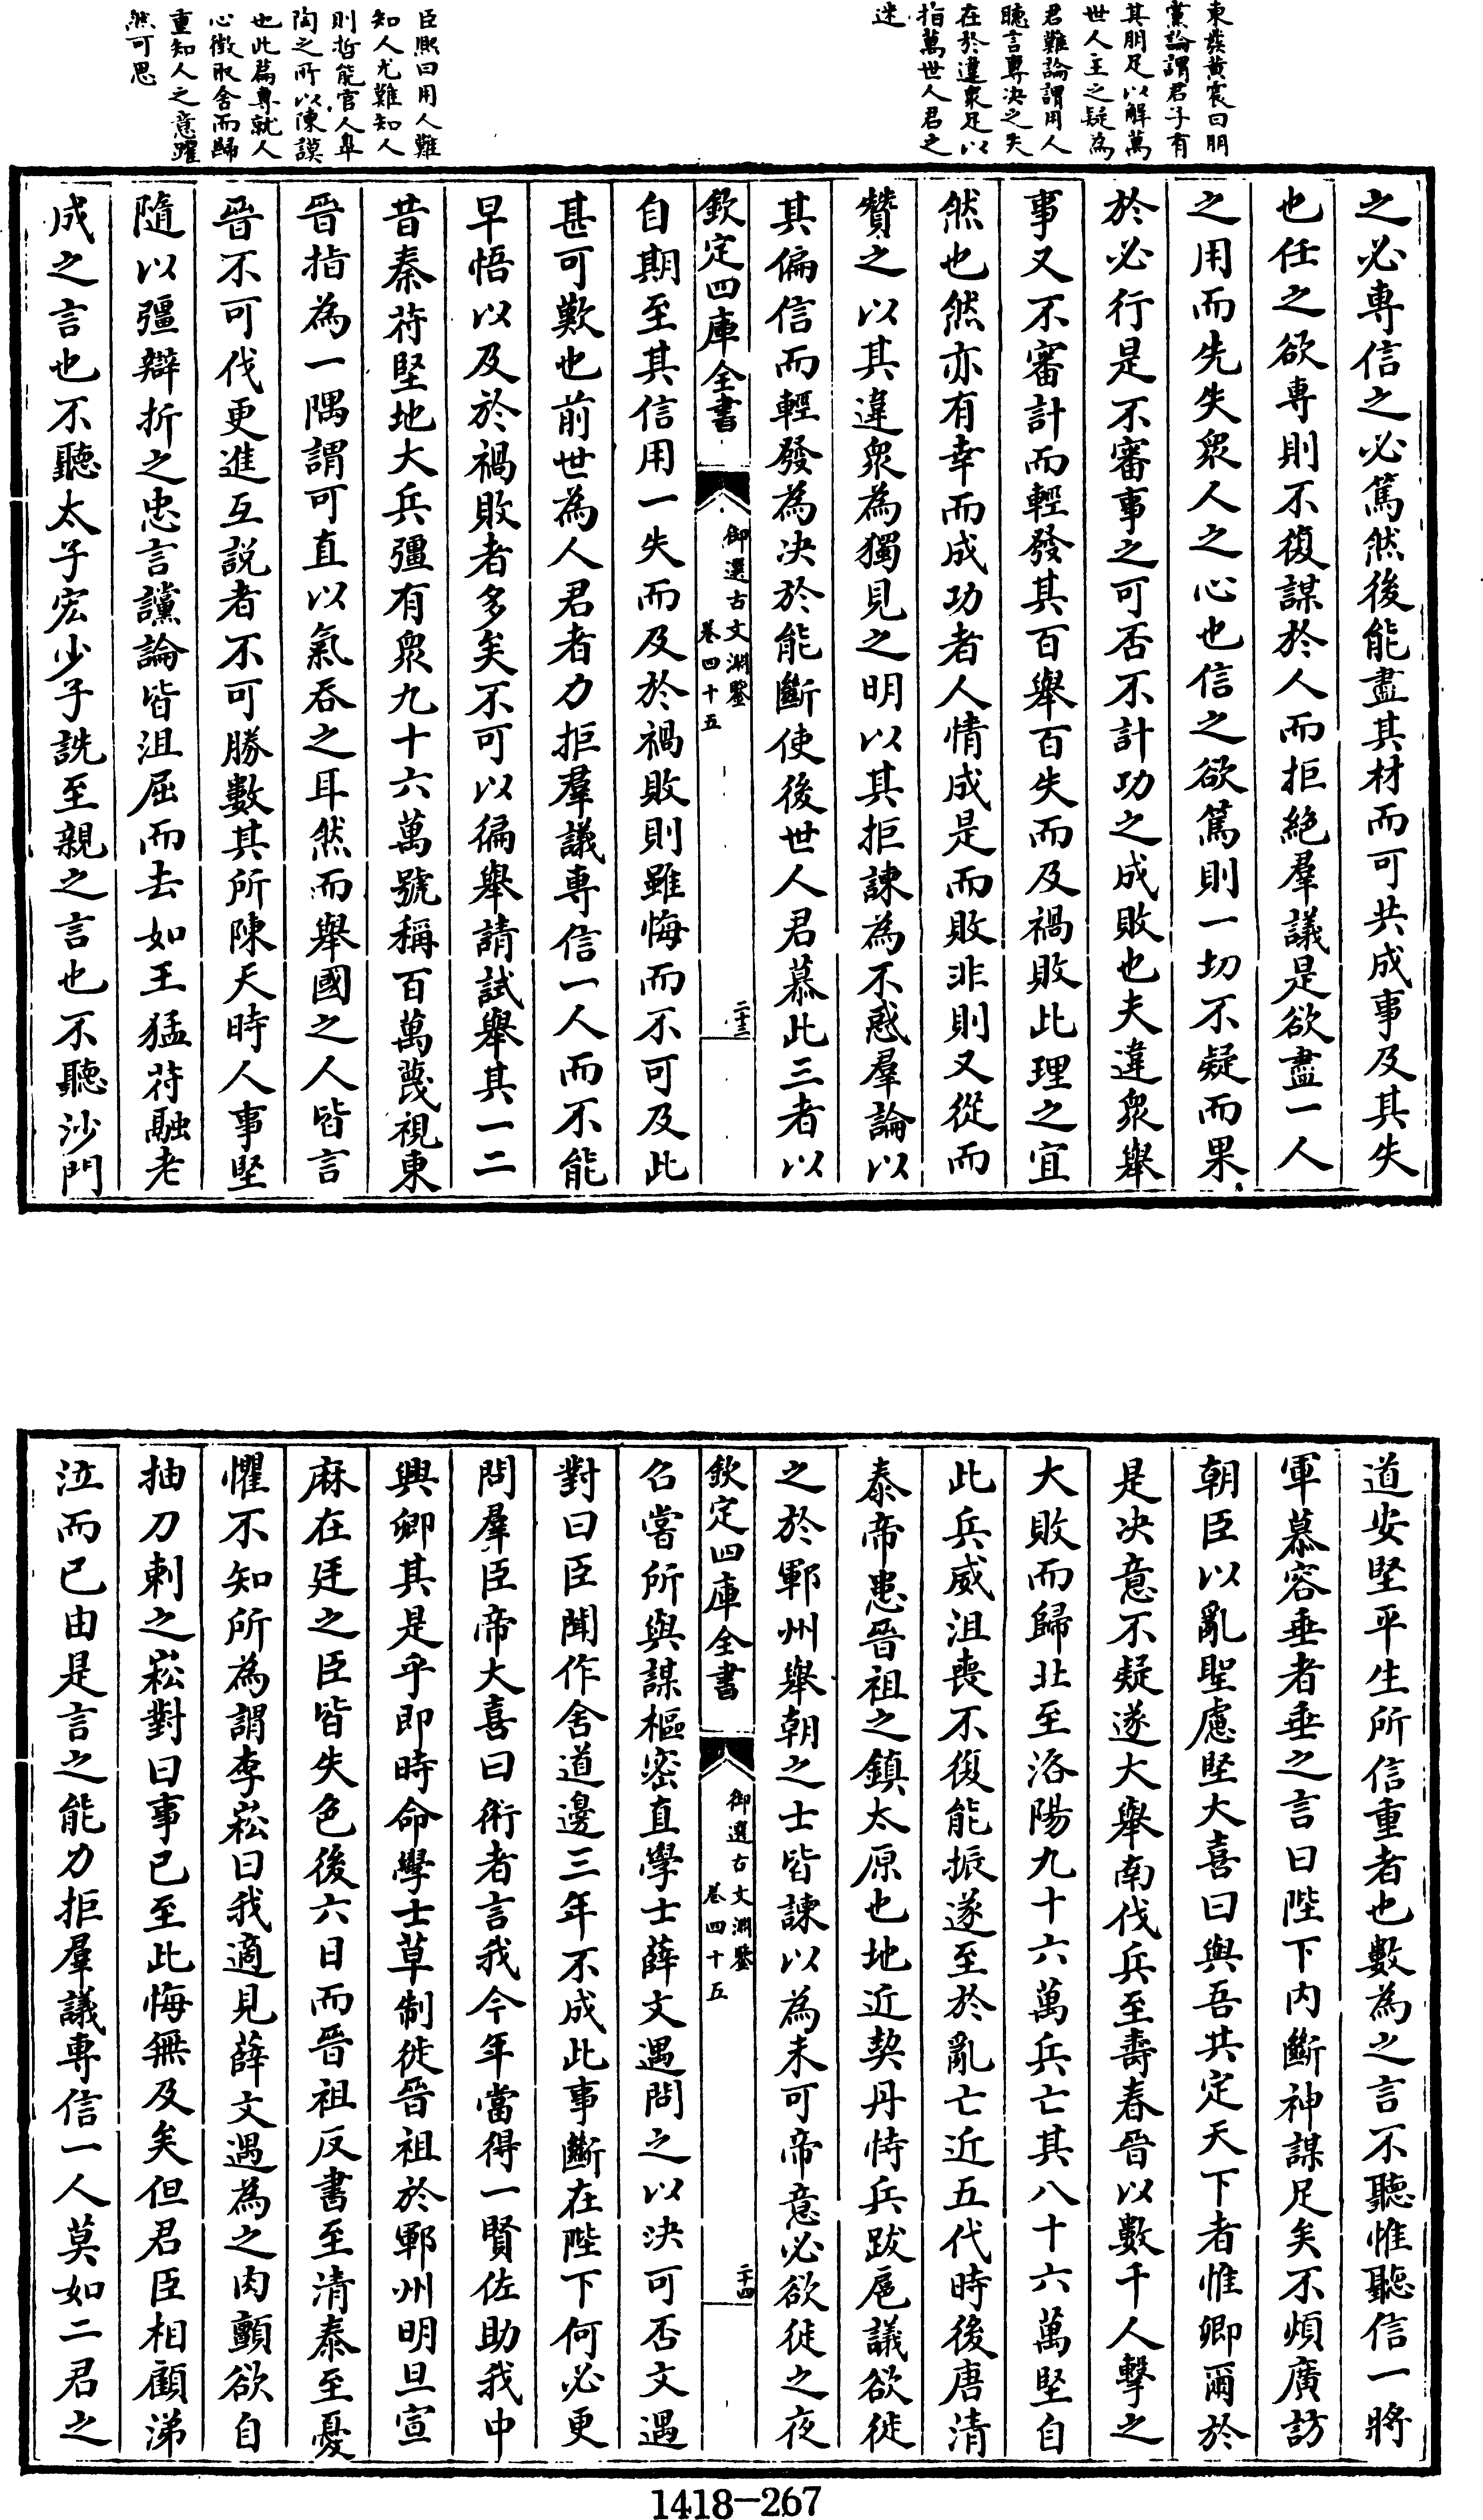 東發黃震曰朋
黨論謂君子有
其朋足以解萬
世人主之疑為
君難論謂用人
聽言專決之失
在於違衆足以
指萬世人君之
迷
臣熙曰用人難
知人尤難知人
則哲能官人臯
陶之所以陳謨
也此篇專就人
心徴取舍而歸
重知人之意躍
然可思
之必專信之必篤然後能盡其材而可共成事及其失
也任之欲專則不復謀於人而拒絶羣議是欲盡一人
之用而先失衆人之心也信之欲篤則一切不疑而果
於必行是不審事之可否不計功之成敗也夫違衆舉
事又不審計而輕發其百舉百失而及禍敗此理之宜
然也然亦有幸而成功者人情成是而敗非則又從而
贊之以其違衆為獨見之明以其拒諫為不惑羣論以
其偏信而輕發為决於能斷使後世人君慕此三者以
欽定四庫全書
御選古文淵鑒
卷四十五
二十三
自期至其信用一失而及於禍敗則雖悔而不可及此
甚可歎也前世為人君者力拒羣議專信一人而不能
早悟以及於禍敗者多矣不可以徧舉請試舉其一二
昔秦苻堅地大兵彊有衆九十六萬號稱百萬蔑視東
晉指為一隅謂可直以氣吞之耳然而舉國之人皆言
晉不可伐更進互說者不可勝數其所陳天時人事堅
隨以彊辯折之忠言讜論皆沮屈而去如王猛苻融老
成之言也不聽太子宏少子詵至親之言也不聽沙門
道安堅平生所信重者也數為之言不聽惟聽信一將
軍慕容垂者垂之言曰陛下内斷神謀足矣不煩廣訪
朝臣以亂聖慮堅大喜曰與吾共定天下者惟卿爾於
是决意不疑遂大舉南伐兵至壽春晉以數千人擊之
大敗而歸北至洛陽九十六萬兵亡其八十六萬堅自
此兵威沮喪不復能振遂至於亂亡近五代時後唐清
泰帝患晉祖之鎮太原也地近契丹恃兵跋扈議欲徙
之於鄆州舉朝之士皆諫以為未可帝意必欲徙之夜
欽定四庫全書
御選古文淵鑒
卷四十五
二十四
召嘗所與謀樞密直學士薛文遇問之以決可否文遇
對曰臣聞作舍道邊三年不成此事斷在陛下何必更
問羣臣帝大喜曰術者言我今年當得一賢佐助我中
興卿其是乎即時命學士草制徙晉祖於鄆州明旦宣
麻在廷之臣皆失色後六日而晉祖反書至清泰至憂
懼不知所為謂李崧曰我適見薛文遇為之肉顫欲自
抽刀刺之崧對曰事已至此悔無及矣但君臣相顧涕
泣而已由是言之能力拒羣議專信一人莫如二君之
1418—267